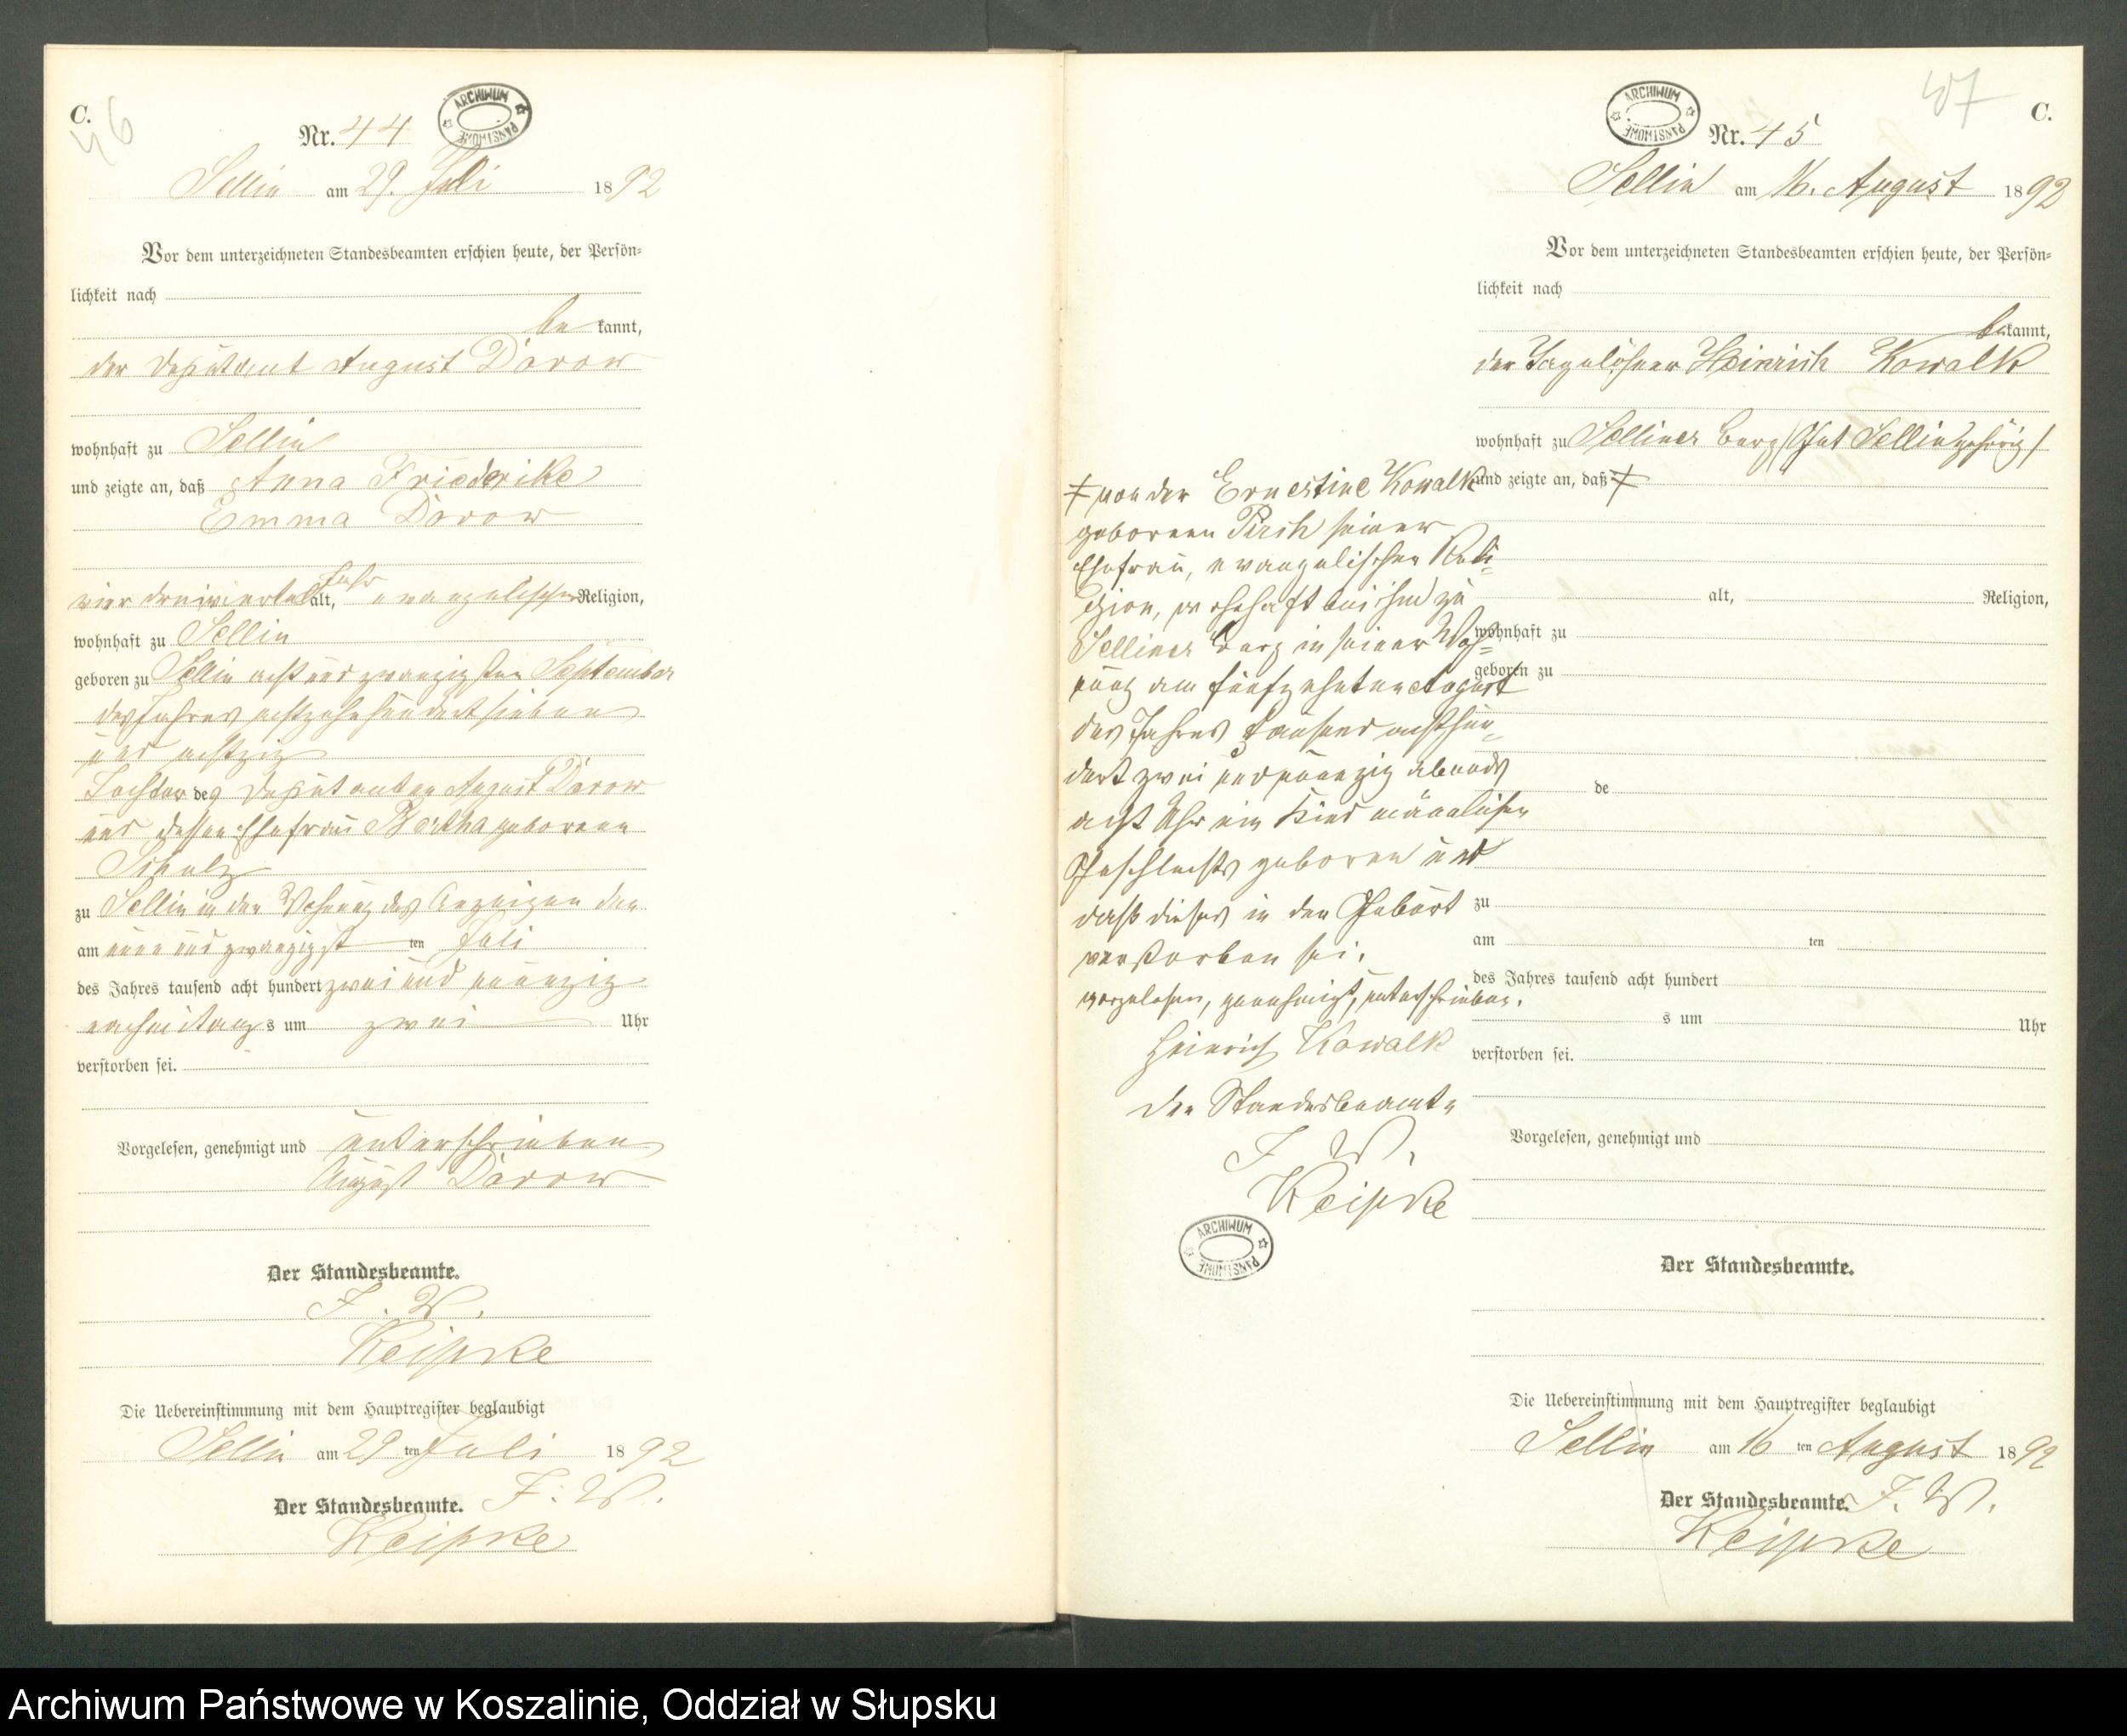 C.
46
Nr. 44
ARCHIWUM PAŃSTWOWE
Sellin am 29. Juli 1892
Vor dem unterzeichneten Standesbeamten erschien heute, der Persön-
lichkeit nach
be kannt,
der Deputant August Dorow
wohnhaft zu Sellin
und zeigte an, daß Anna Friederike
Emma Dorow
vier dreiviertel Jahr alt, evangelischer Religion,
wohnhaft zu Sellin
geboren zu Sellin acht und zwanzigsten September
des Jahres achtzehnhundert sieben
und achtzig
Tochter des Deputanten August Dorow
und dessen Ehefrau Bertha geborene
Schulz
zu Sellin in der Wohnung des Anzeigenden
am neun und zwanzigst ten Juli
des Jahres tausend acht hundert zwei und neunzig
nachmittags um zwei Uhr
verstorben sei.
Vorgelesen, genehmigt und unterschrieben
August Dorow
Der Standesbeamte.
J. V.
Keipke
Die Uebereinstimmung mit dem Hauptregister beglaubigt
Sellin am 29 ten Juli 1892
Der Standesbeamte. J. V.
Keipke
47
C.
ARCHIWUM PAŃSTWOWE
Nr. 45
Sellin am 16. August 1892
Vor dem unterzeichneten Standesbeamten erschien heute, der Persön-
lichkeit nach
be kannt,
der Tagelöhner Heinrich Kowalk
wohnhaft zu Selliner Berg (Gut Sellin gehörig)
und zeigte an, daß ╪
╪ von der Ernestine Kowalk
geborenen Pirch seiner
Ehefrau, evangelischer Reli-
gion, wohnhaft bei ihm zu
Selliner Berg in seiner Woh-
nung am fünfzehnten August
des Jahres tausend achthun-
dert zwei und neunzig abends
acht Uhr ein Kind männlichen
Geschlechts geboren und
daß dieses in der Geburt
verstorben sei.
vorgelesen, genehmigt, unterschrieben.
Heinrich Kowalk
Der Standesbeamte
J. V.
Keipke
ARCHIWUM PAŃSTWOWE
alt, Religion,
wohnhaft zu
geboren zu
de
zu
am ten
des Jahres tausend acht hundert
s um Uhr
verstorben sei.
Vorgelesen, genehmigt und
Der Standesbeamte.
Die Uebereinstimmung mit dem Hauptregister beglaubigt
Sellin am 16 ten August 1892
Der Standesbeamte. J. V.
Keipke
Archiwum Państwowe w Koszalinie, Oddział w Słupsku